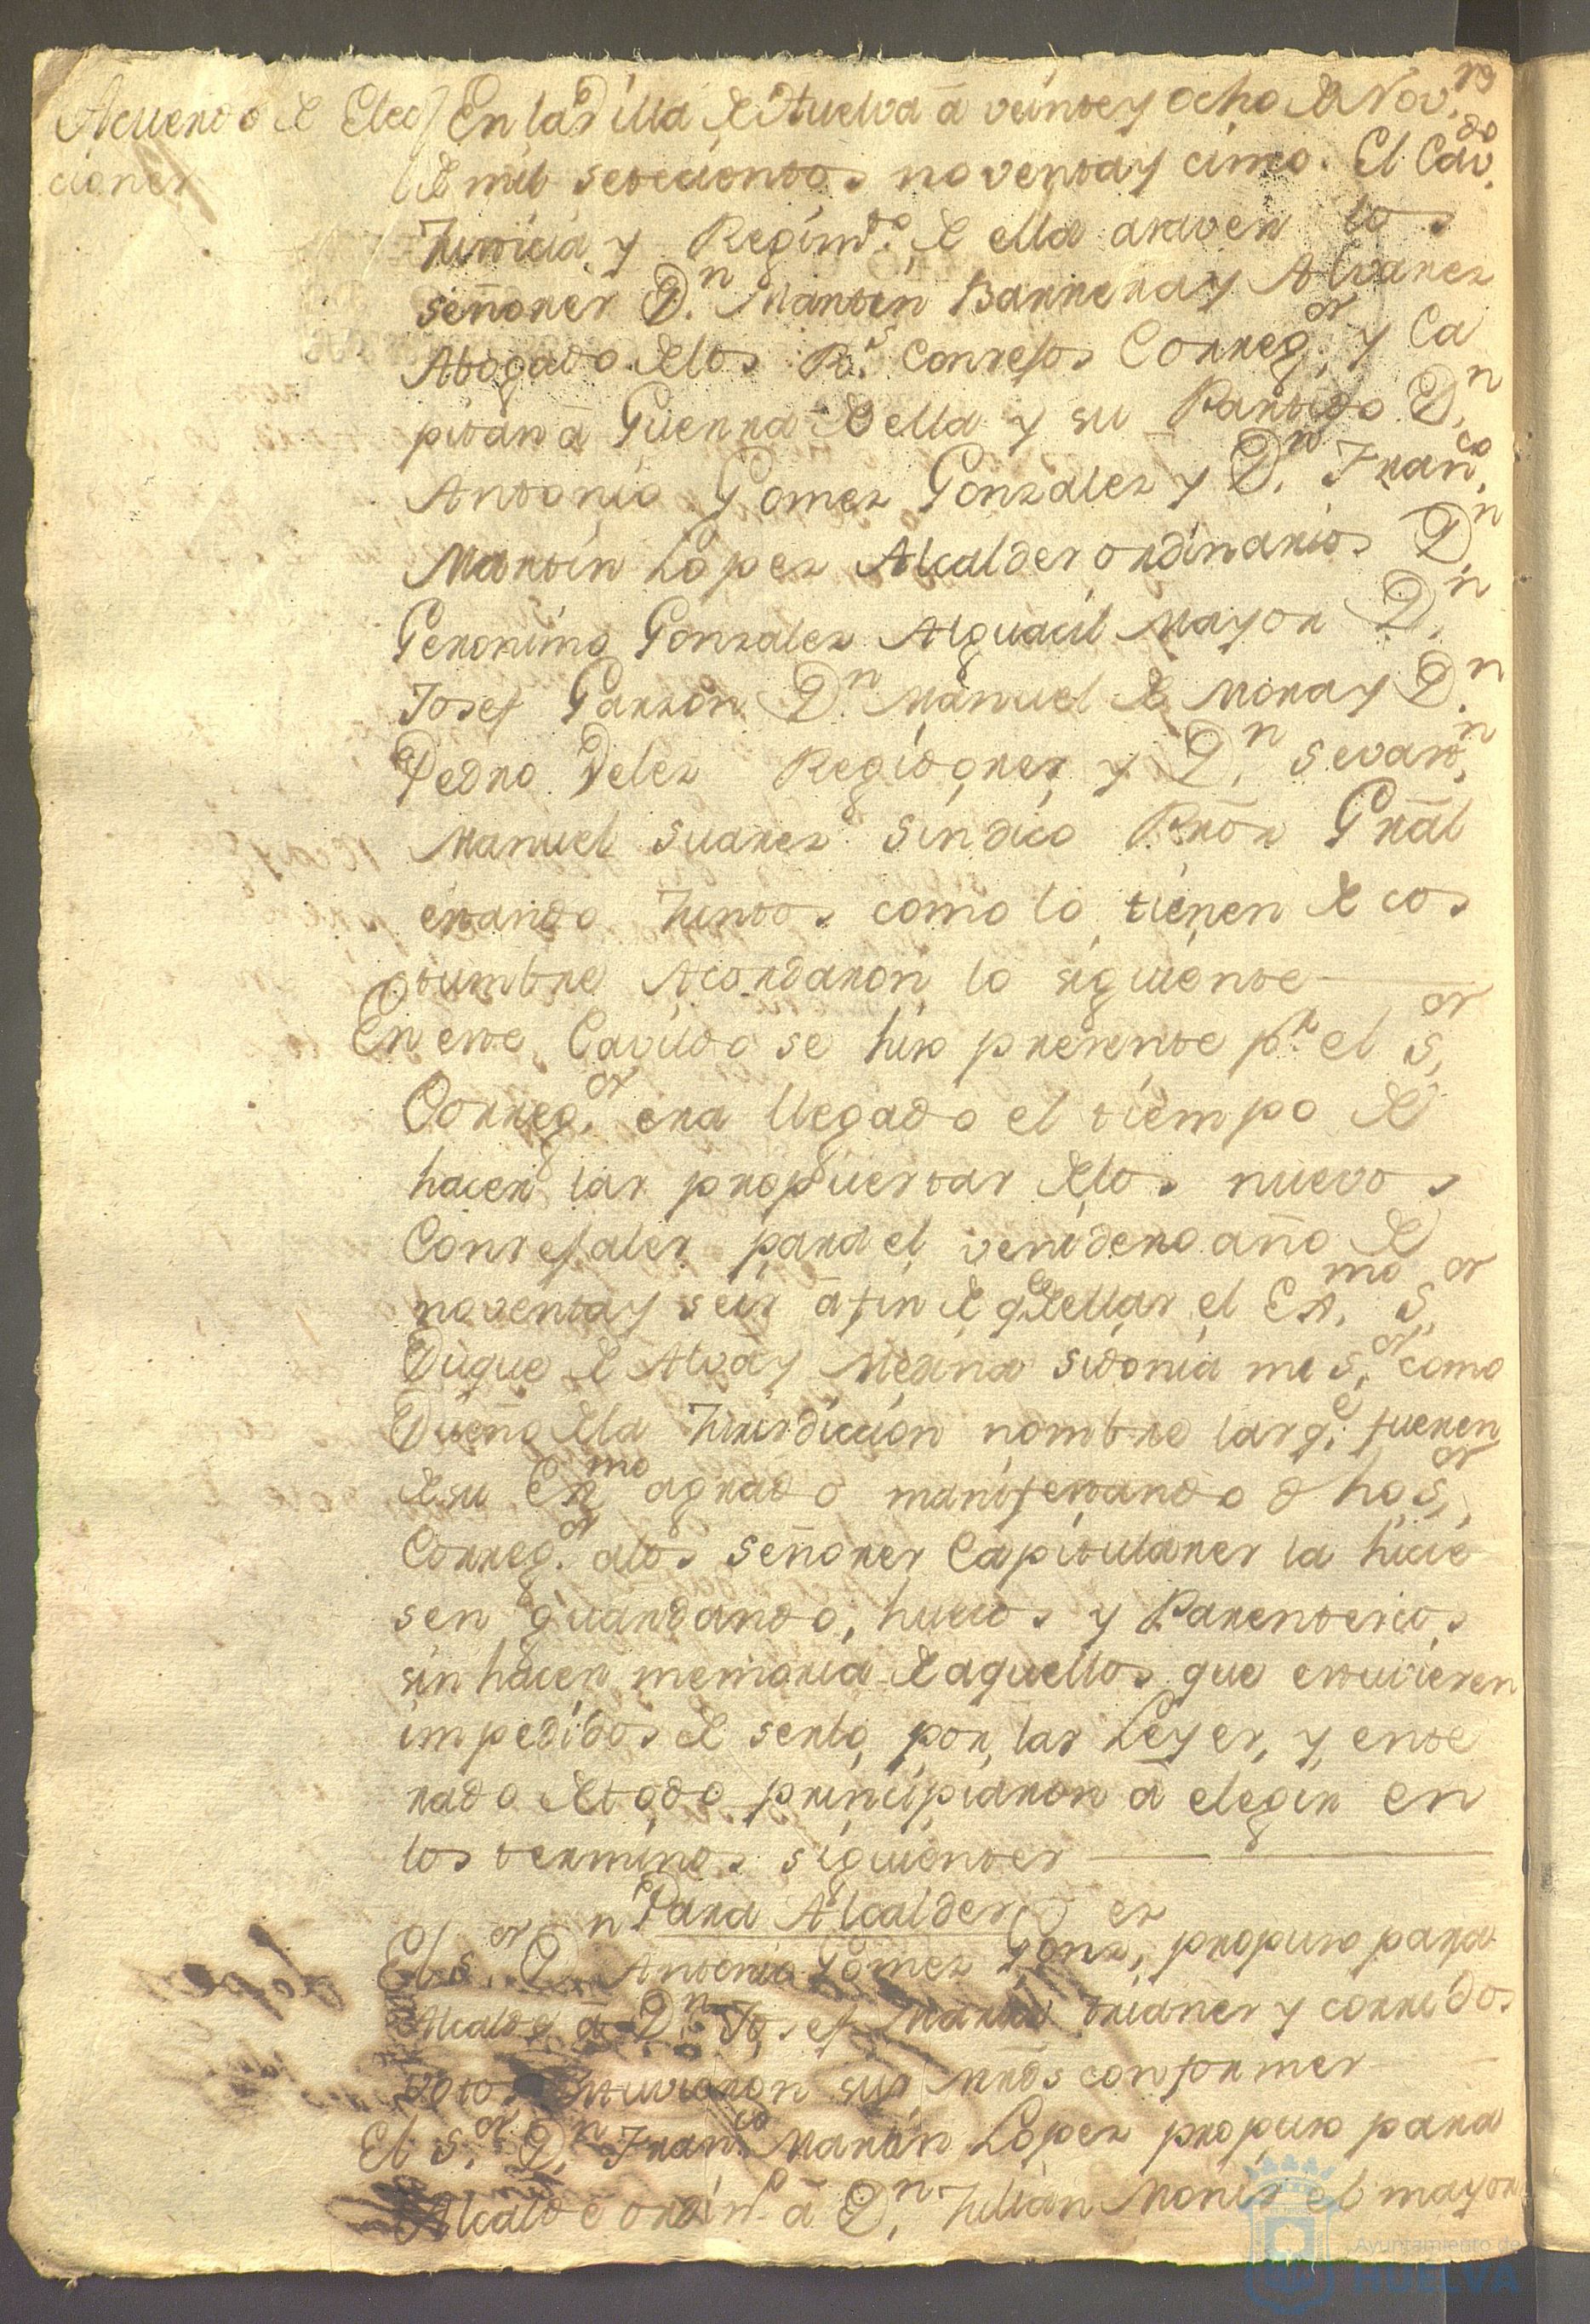 Acuerdo de Elec
ciones
En la Villa de Huelva â veinte y ocho de Nov.re
de mil setecientos noventa y cinco. El Cav.do
Justicia y Regim.to de ella asaver los
señores D.n Martin Barrera y Alvarez
Abogado de los R.s Consejos Correg.or y Ca
pitan â Guerra de ella y su Partido D.n
Antonio Gomez Gonzalez y D.n Fran.co
Martin Lopez Alcaldes ordinarios D.n
Geronimo Gonzalez Alguacil Mayor D.n
Josef Garzon D.n Manuel de Mora y D.n
Pedro Velez Regidores y D.n Sevast.n
Manuel Suarez Sindico Prōr Grāl
estando Juntos como lo tienen de cos
tumbre Acordaron lo siguiente
En este Cavildo se hizo presente p.r el S.or
Correg.or era llegado el tiempo de
hacer las propuestas de los nuevos
Consejales para el venidero año de
noventa y seis â fin de q.e de ellas el Ex.mo S.or
Duque de Alva y Medina Sidonia mi S.or como
Dueño de la Jurisdiccion nombre las q.e fueren
de su Ex.mo agrado manifestando dho S.or
Correg.or a los Señores Capitulares la hicie
sen guardando, huecos y Parentescos
sin hacer memoria de aquellos que estuvieren
impedidos de serlo por las Leyes, y ente
rado de todo principiaron â elegir en
los terminos siguientes
Para Alcaldes
El S.or D.n Antonio Gomez Gonz.ez propuso para
Alcalde â D.n Josef Maria Trianes y corridos
votos estuvieron sus mrds conformes
El S.or D.n Fran.co Martin Lopez propuso para
Alcalde ordin.o â D.n Julian Monis el mayor
Ayuntamiento de
HUELVA